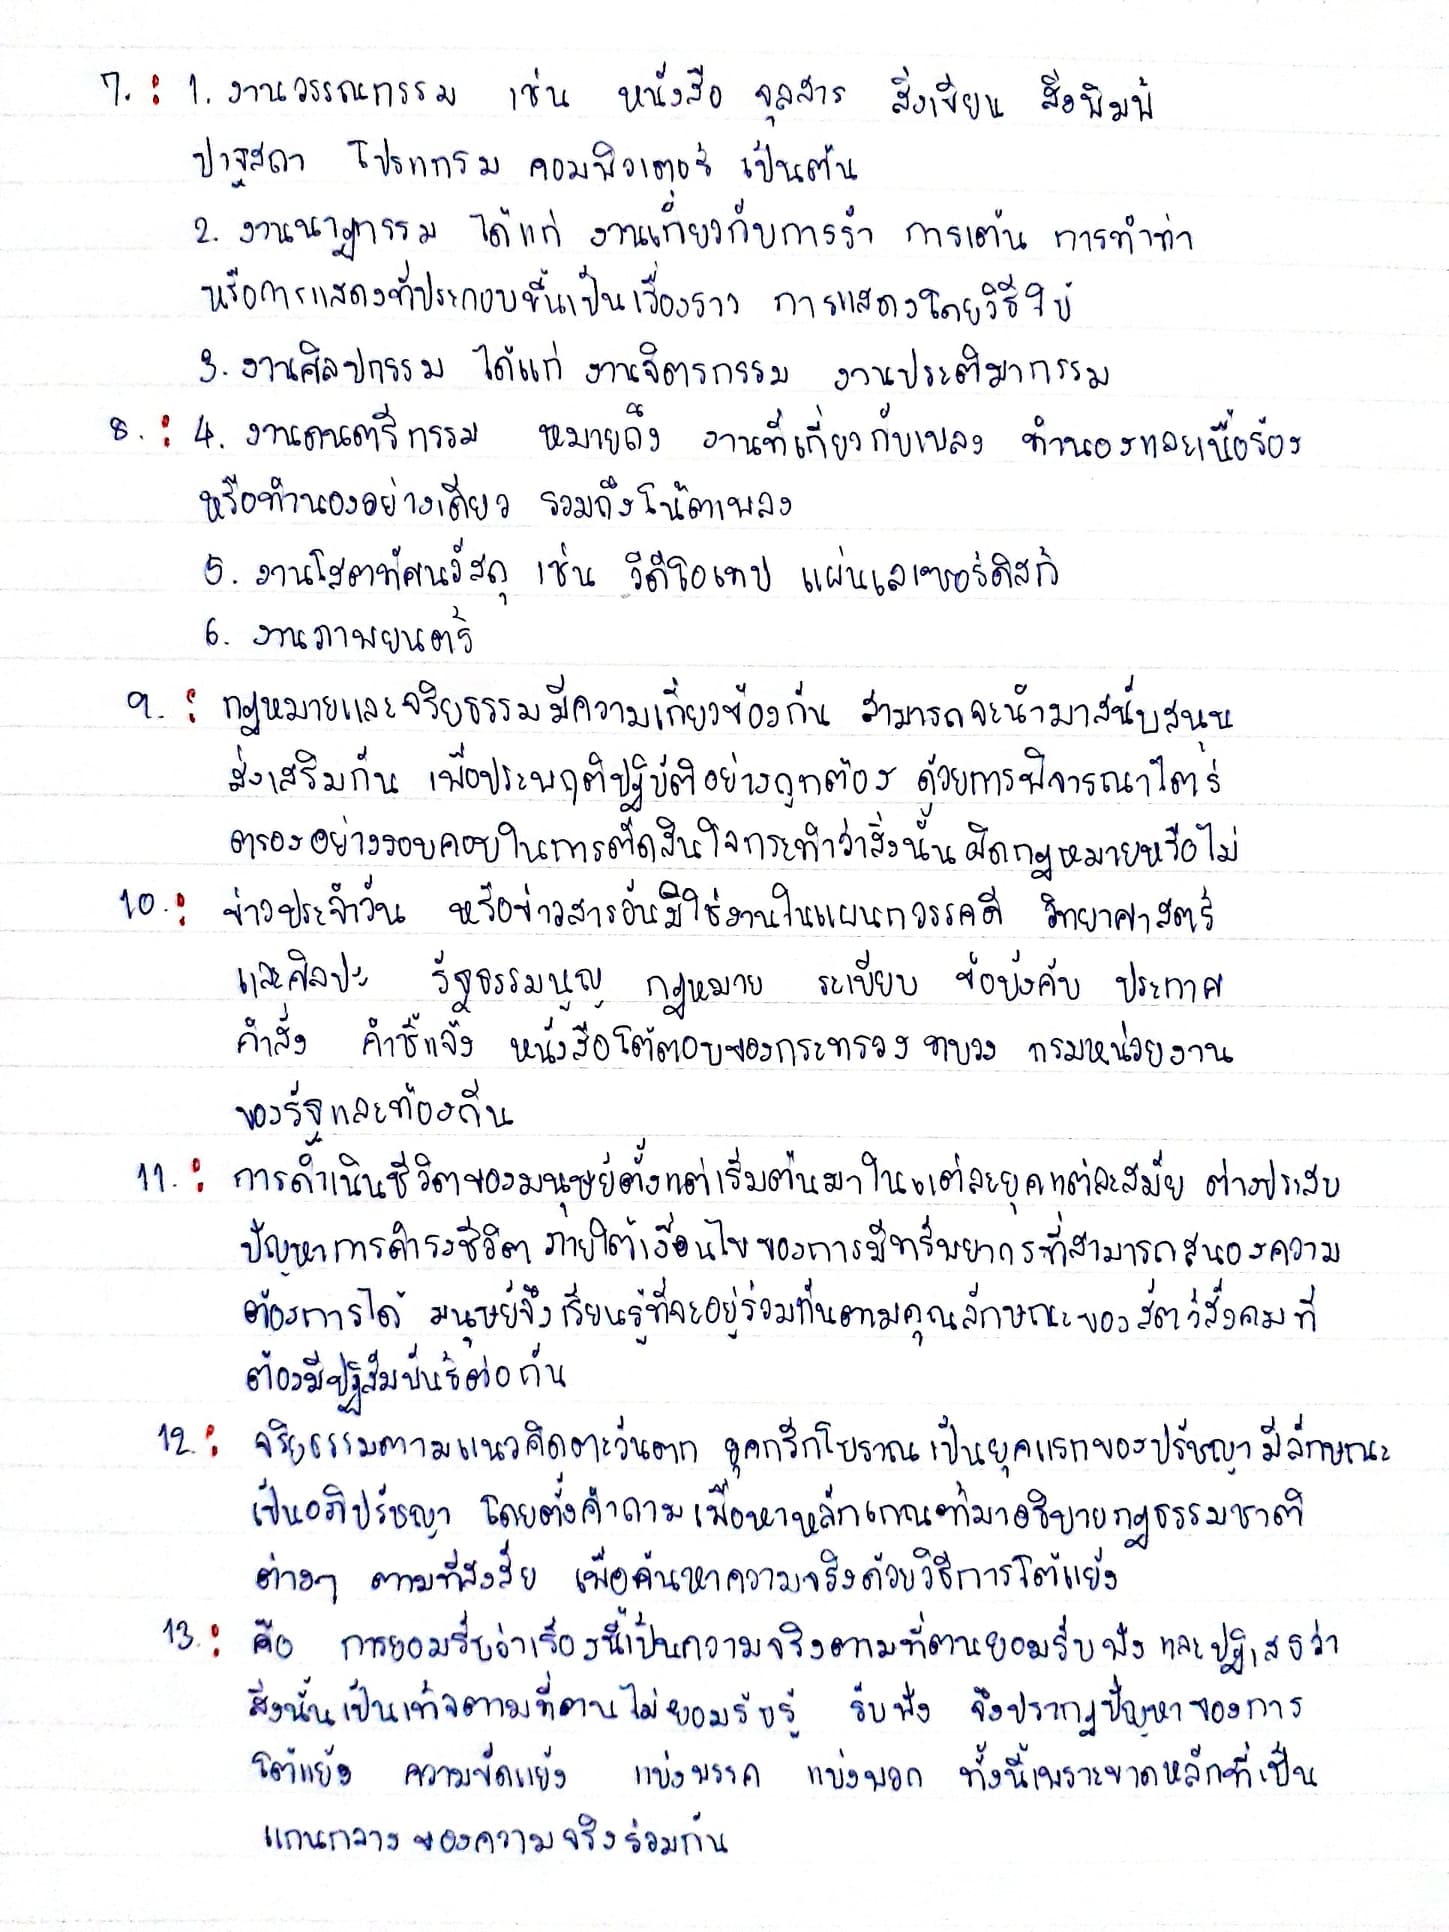 7. : 1. งานวรรณกรรม เช่น หนังสือ จุลสาร สิ่งเขียน สิ่งพิมพ์
ปาฐสถา โปรแกรม คอมพิวเตอร์ เป็นต้น
2. งานนาฏกรรม ได้แก่ งานเกี่ยวกับการรำ การเต้น การทำท่า
หรือการแสดงที่ประกอบขึ้นเป็นเรื่องราว การแสดงโดยวิธีใบ้
3. งานศิลปกรรม ได้แก่ งานจิตรกรรม งานประติมากรรม
8. : 4. งานดนตรีกรรม หมายถึง งานที่เกี่ยวกับเพลง ทำนองและเนื้อร้อง
หรือทำนองอย่างเดียว รวมถึงโน้ตเพลง
5. งานโสตทัศนวัสดุ เช่น วีดีโอเทป แผ่นเลเซอร์ดิสก์
6. งานภาพยนตร์
9. : กฎหมายและจริยธรรมมีความเกี่ยวข้องกัน สามารถจะนำมาสนับสนุน
ส่งเสริมกัน เพื่อประพฤติปฏิบัติอย่างถูกต้อง ด้วยการพิจารณาไตร่
ตรองอย่างรอบคอบในการตัดสินใจกระทำว่าสิ่งนั้นผิดกฎหมายหรือไม่
10. : ข่าวประจำวัน หรือข่าวสารอันมีใช้งานในแผนกวรรคดี วิทยาศาสตร์
และศิลปะ รัฐธรรมนูญ กฎหมาย ระเบียบ ข้อบังคับ ประกาศ
คำสั่ง คำชี้แจ้ง หนังสือโต้ตอบของกระทรวง ทบวง กรมหน่วยงาน
ของรัฐและท้องถิ่น
11. : การดำเนินชีวิตของมนุษย์ตั้งแต่เริ่มต้นมาในแต่ละยุคแต่ละสมัย ต่างประสบ
ปัญหาการดำรงชีวิต ภายใต้เงื่อนไขของการมีทรัพยากรที่สามารถสนองความ
ต้องการได้ มนุษย์จึงเรียนรู้ที่จะอยู่ร่วมกันตามคุณลักษณะของสัตว์สังคมที่
ต้องมีปฏิสัมพันธ์ต่อกัน
12. : จริยธรรมตามแนวคิดตะวันตก ยุคกรีกโบราณเป็นยุคแรกของปรัชญา มีลักษณะ
เป็นอภิปรัชญา โดยตั้งคำถามเพื่อหาหลักเกณฑ์มาอธิบายกฎธรรมชาติ
ต่างๆ ตามที่สงสัย เพื่อค้นหาความจริงด้วยวิธีการโต้แย้ง
13. : คือ การยอมรับว่าเรื่องนี้เป็นความจริงตามที่ตนยอมรับฟัง และปฏิเสธว่า
สิ่งนั้นเป็นเท็จตามที่ตนไม่ยอมรับรู้ รับฟัง จึงปรากฏปัญหาของการ
โต้แย้ง ความขัดแย้ง แบ่งพรรค แบ่งพวก ทั้งนี้เพราะขาดหลักที่เป็น
แกนกลางของความจริงร่วมกัน